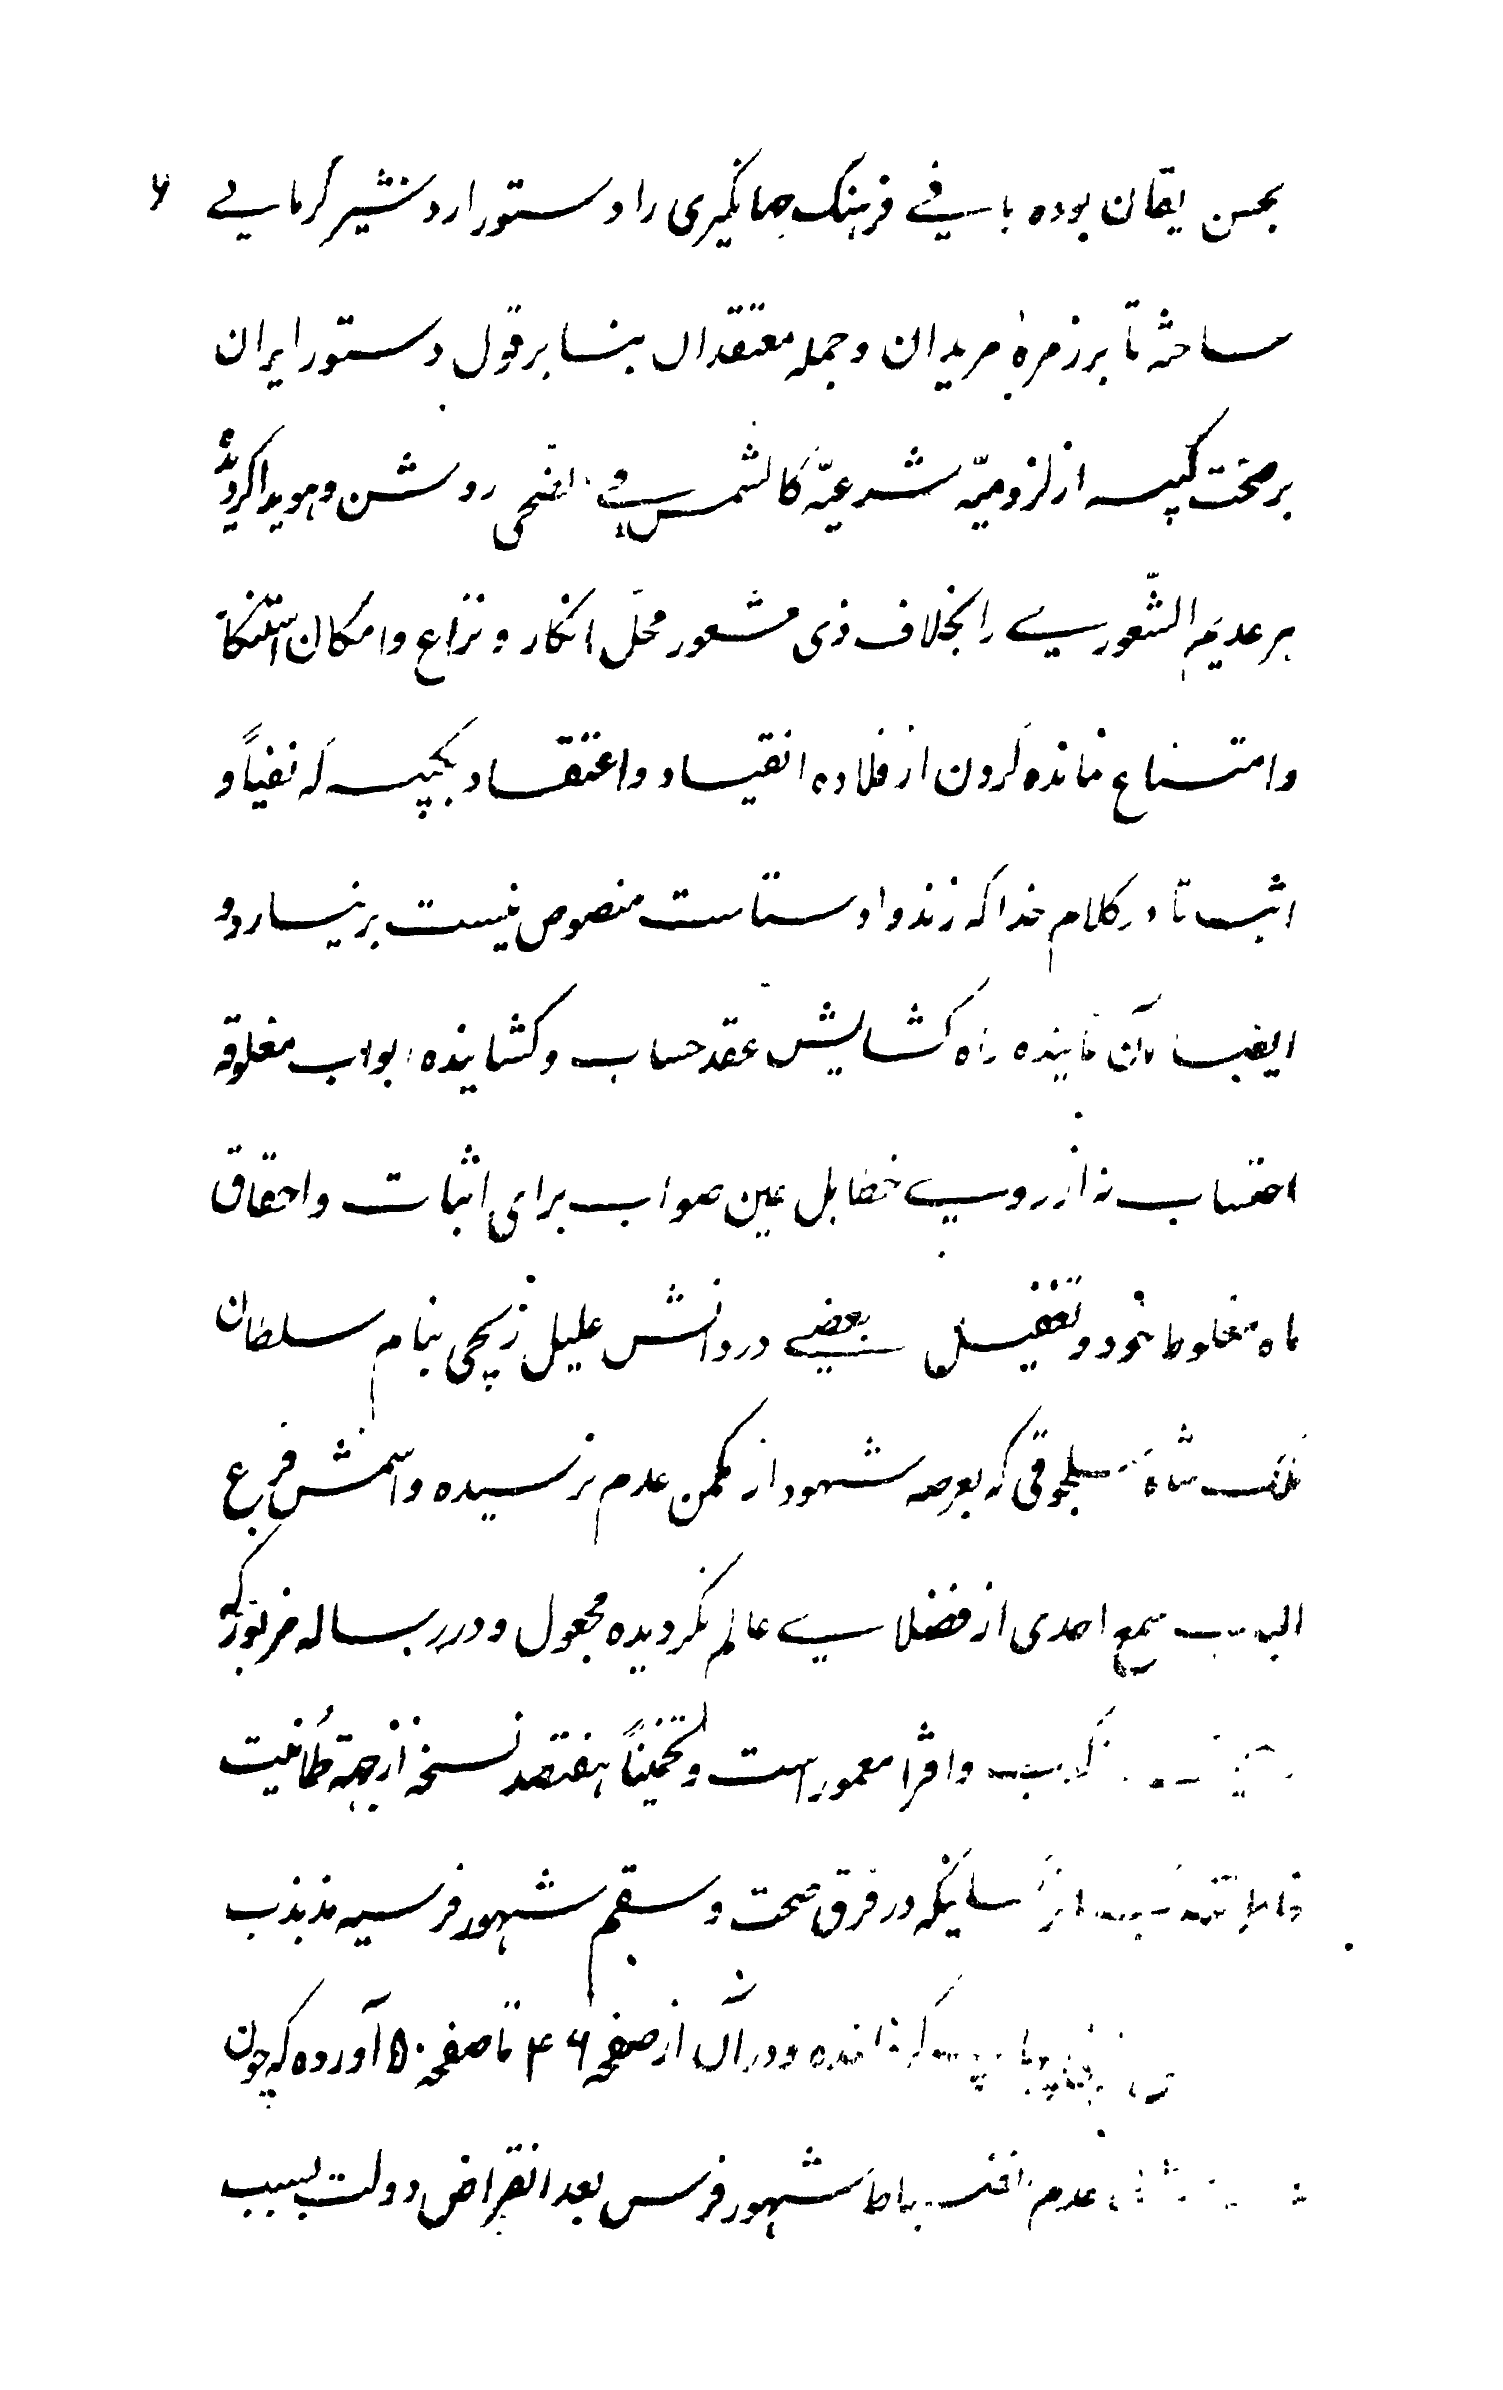 ۶
بحسن یقان بوده باسفے فرہنک جهانکیری را دستور اردشیر کرمانے
ساخته تا بر زمرۀ مریدان و جمله معتقدان بنا بر قول دستور ایران
بر صحت کبیسه از لزومیّه شرعیّه کالشمس فے الضحی روشن و هویدا کردیدۀ
هر عدیم الشّعورے را بخلاف ذی شعور محلّ انکار و نزاع و امکان استنکا
و امتناع نمانده کردن از قلاده انقیاد و اعتقاد بکبیسه که نفیاً و
اثباتا در کلام خدا که زند و اوستاست منصوص نیست بر نیارد و
ایضا آن نماینده راه کشایش عقد حساب و کشاینده ابواب مغلوقه
احتساب نه از روے خطا بل عین صواب برای اثبات و احقاق
ماه مغلوط خود و بعضے در دانش علیل زیچی بنام سلطان
ملک شاه سلجوقی که بعرصه شهود از مکمن عدم نرسیده و اسمش قرع
الباب سمع احدی از فضلاے عالم نکردیده مجعول و در رساله مزبور که
وافر معمور است و تخمیناً هفتصد نسخه از جهة طمانیت
سانیکه در فرق صحت و سقم شهور فرسیه مذبذب
کردانده و در آن از صفحه ۴۶ تا صفحه ۵۰ آورده که چون
عدم انضباط شهور فرس بعد انقراض دولت بسبب